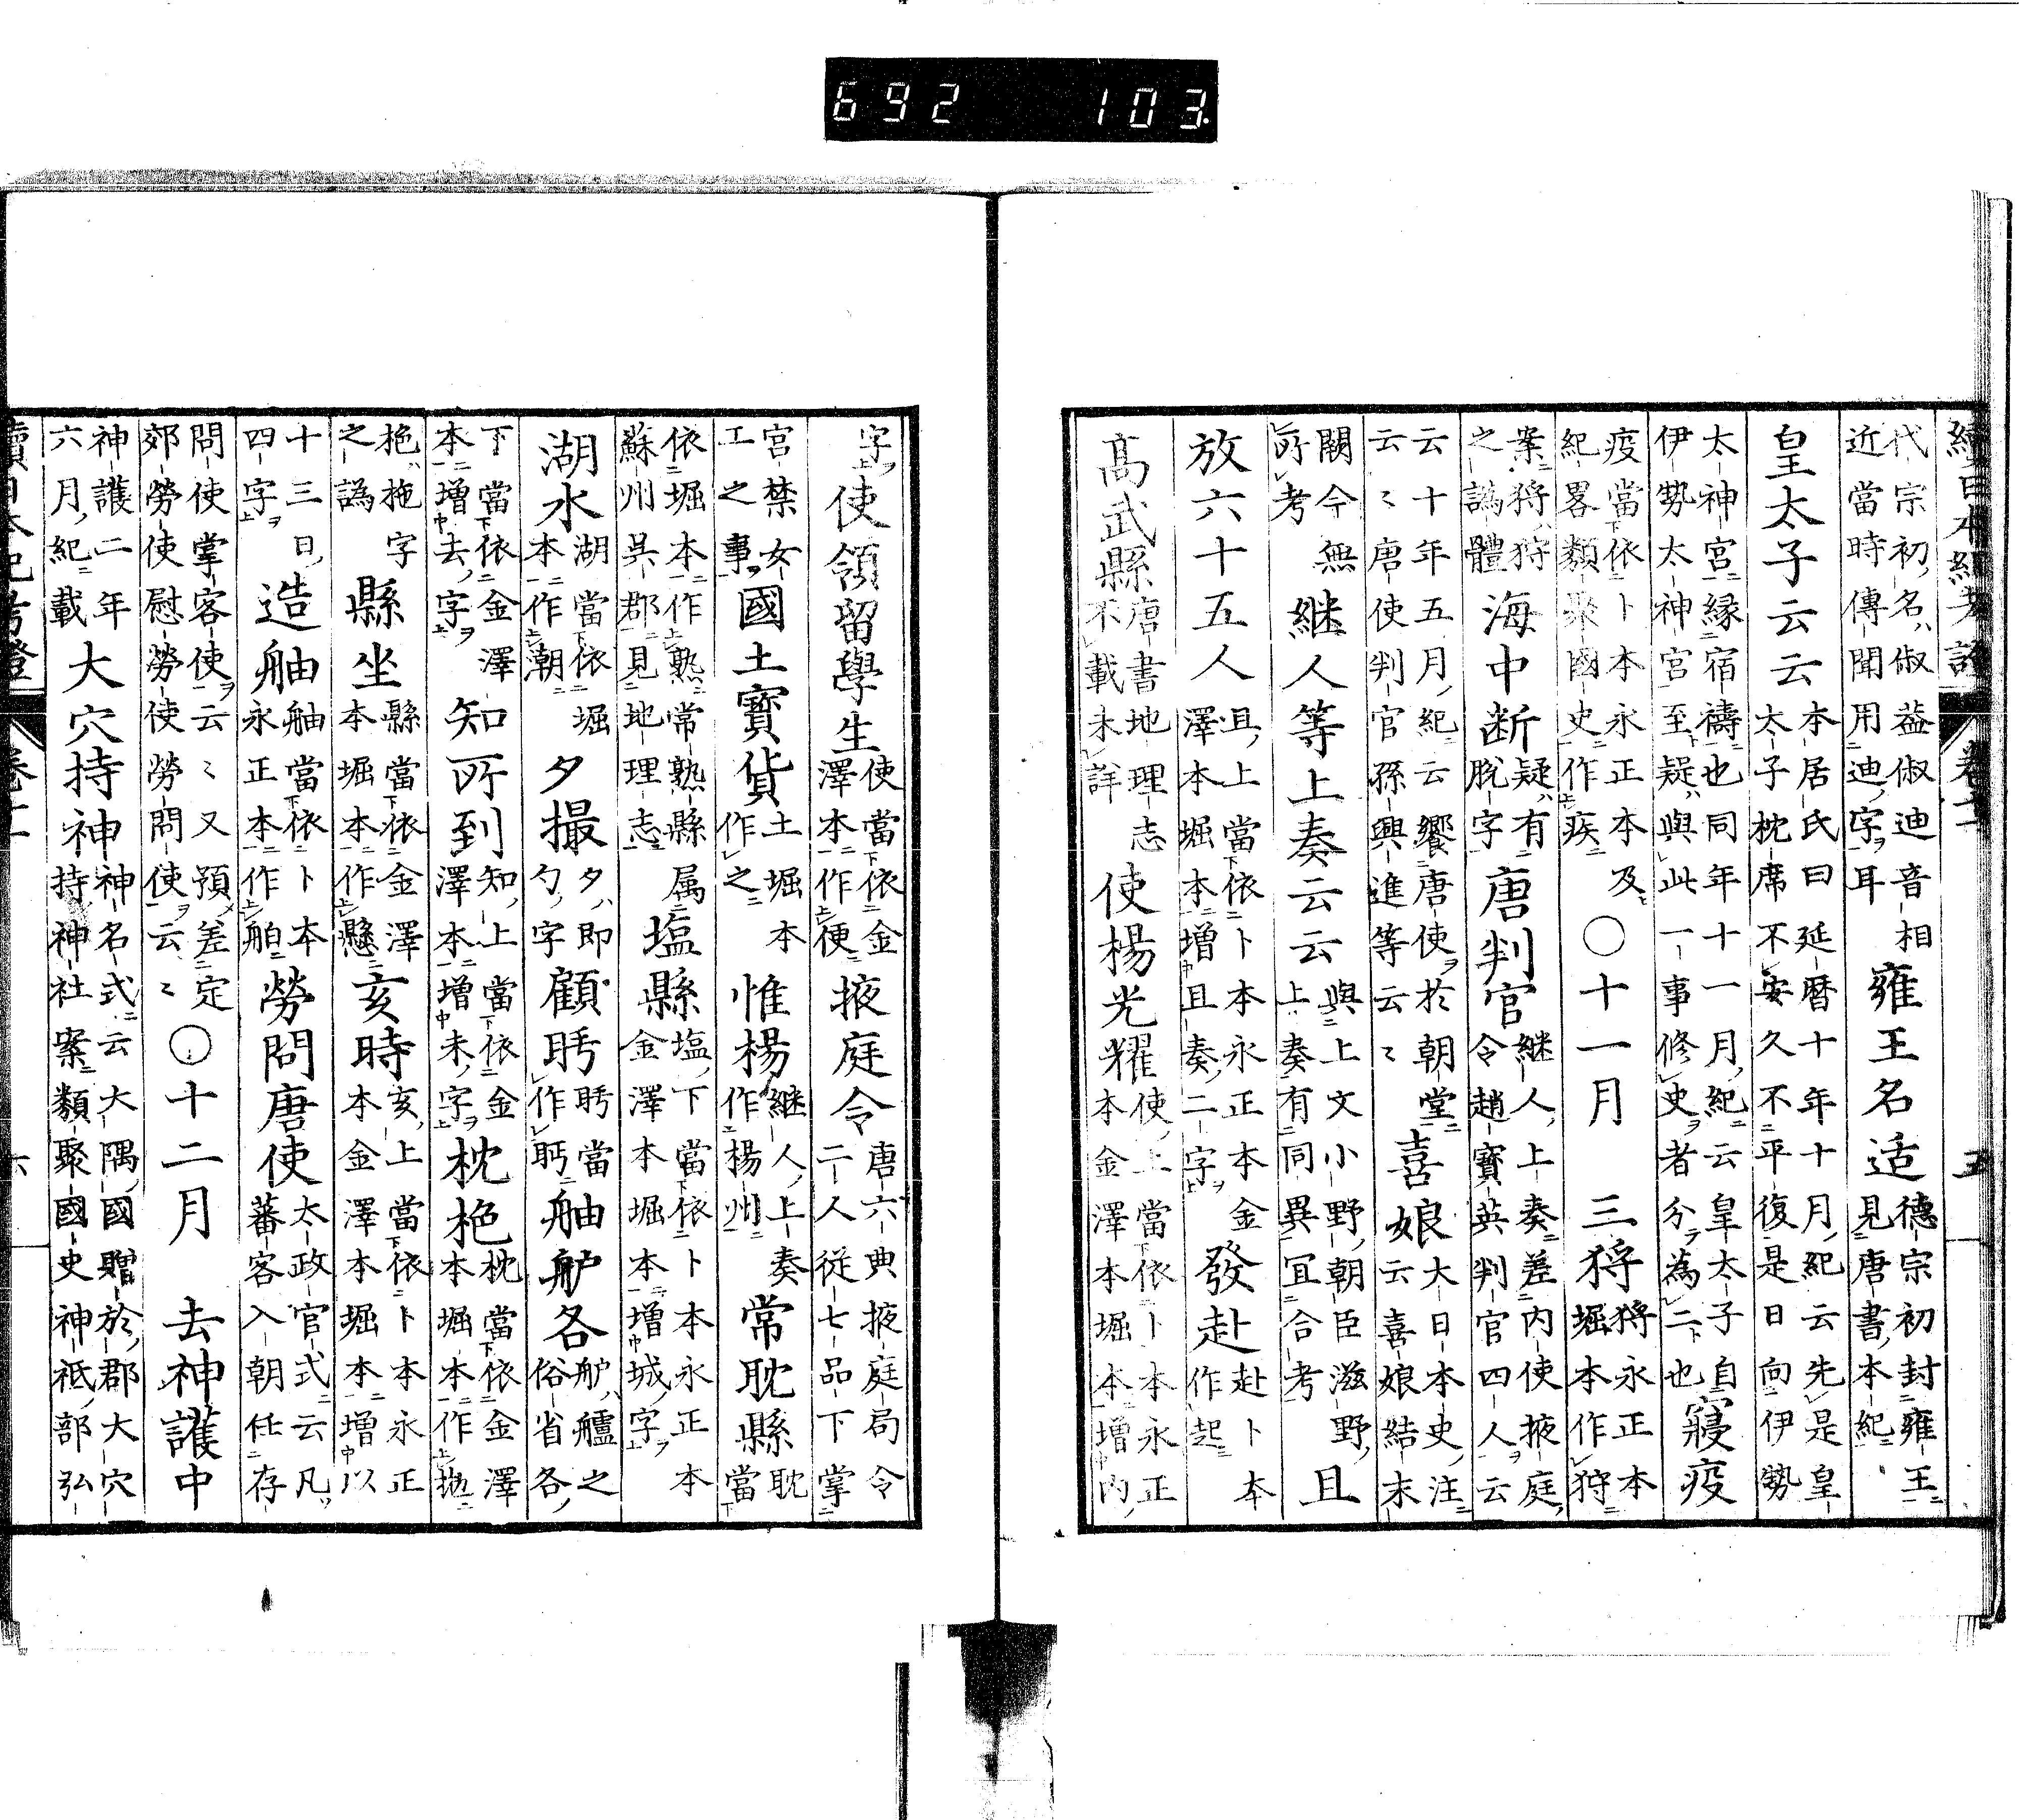 692 103
續日本紀考證 卷十一 五
代宗初名俶蓋俶迪音相
近當時傳聞用迪字耳
雍王名适
德宗初封雍王
見唐書本紀
皇太子云云
本居氏曰延曆十年十月紀云先是皇
太子枕席不安久不平復是日向伊勢
太神宮緣宿禱也同年十一月紀云皇太子自
伊勢太神宮至疑與此一事修史者分為二也
寢疫
疫當依卜本永正本及
紀畧類聚國史作疾
○十一月
三㹿
㹿永正本
堀本作狩
案㹿狩
之譌體
海中断
疑有
脫字
唐判官
継人上奏差內使掖庭
令趙寶英判官四人云
云十年五月紀云饗唐使於朝堂
云々唐使判官孫興進等云々
喜娘
大日本史注
云喜娘結末
闕今無
所考
継人等上奏云云
與上文小野朝臣滋野
上奏有同異冝合考
且
放六十五人
且上當依卜本永正本金
澤本堀本增且奏二字
發赴
赴卜本
作起
髙武縣
唐書地理志
不載未詳
使楊光耀
使上當依卜本永正
本金澤本堀本增內
字
使領留學生
使當依金
澤本作便
掖庭令
唐六典掖庭局令
二人從七品下掌
宮禁女
工之事
國土寳貨
土堀本
作之
惟楊
継人上奏
作楊州
常耽縣
耽當
依堀本作熟常熟縣属
蘇州吳郡見地理志
塩縣
塩下當依卜本永正本
金澤本堀本增城字
湖水
湖當依堀
本作潮
夕撮
夕即
勺字
顧眄
眄當
作眄
舳舮各
舮艫之
俗省各
下當依金澤
本增去字
知所到
知上當依金
澤本增未字
枕栬
枕當依金澤
本堀本作拋
栬拖字
之譌
縣坐
縣當依金澤
本堀本作懸
亥時
亥上當依卜本永正
本金澤本堀本增以
十三日
四字
造舳
舳當依卜本
永正本作舶
勞問唐使
太政官式云凡
蕃客入朝任存
問使掌客使云々又預差定
郊勞使慰勞使勞問使云々
○十二月
去神護中
神護二年
六月紀載
大穴持神
神名式云大隅國贈於郡大穴
持神社案類聚國史神祇部弘
續日本紀考證 卷十一 六